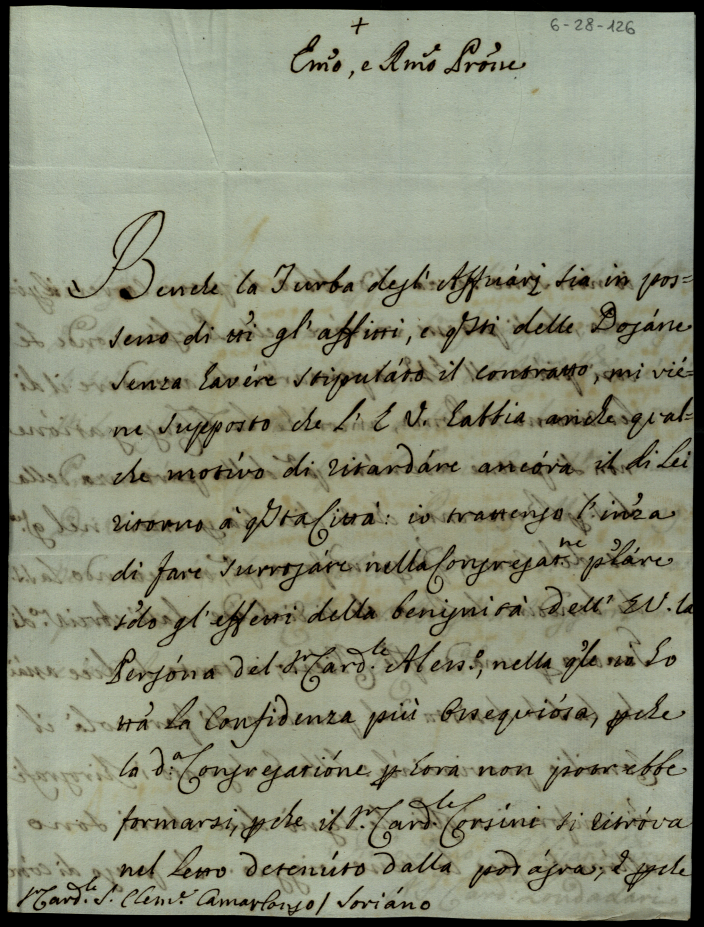 6-28-126
+
Emõ, e Rmõ Prõne
Benche la Turba degl' Affituarj sia in pos=
sesso di tt̃i gl' affitti, e q̃sti delle Dogáne
senza havére stipuláto il contratto, mi vié=
ne supposto che l' E V. habbia anche qual=
che motívo di ritardáre ancóra il di Lei
ritorno à q̃sta Città: io trattengo l' inz̃a
di fare surrogáre nella Congregat.ne p̃láre
sólo gl' effetti della benignità dell' E V. la
Persóna del Sr Card.le Aless.o, nella q̃le io hò
tt̃a la Confidenza più Ossequiósa, pche
la d.a Congregatióne p hora non potrebbe
formarsi, pche il Sr Card.le Corsini si ritróva
nel letto detenúto dalla podágra, è pche
Sr Card.le S. Clem.e Camarlengo / Soriáno